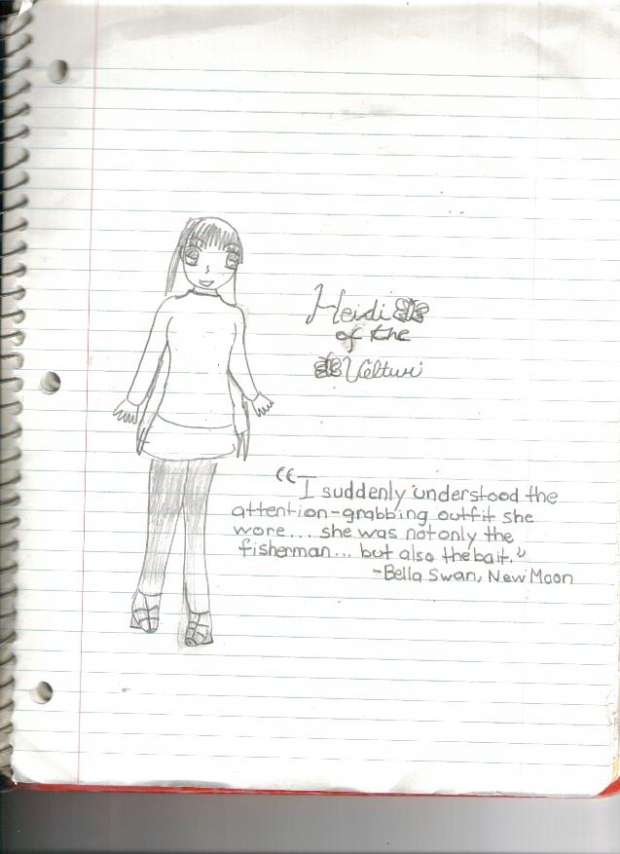 Heidi
of the
Volturi
"I suddenly understood the
attention-grabbing outfit she
wore... she was not only the
fisherman... but also the bait."
-Bella Swan, New Moon